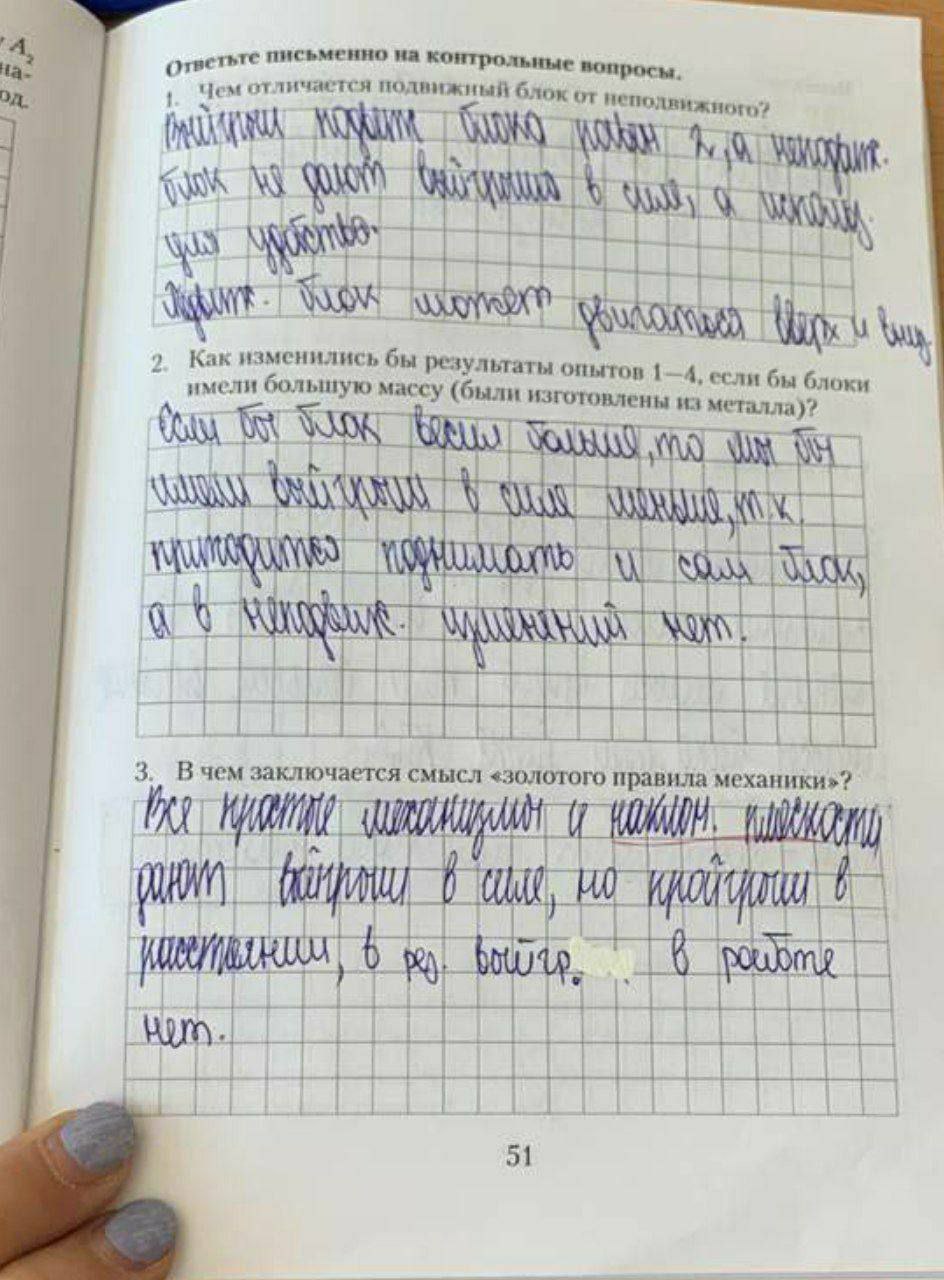 у А₂
на-
од.
Ответьте письменно на контрольные вопросы.
1. Чем отличается подвижный блок от неподвижного?
Выйгрыш подвиж блока равен 2, а неподвиж.
блок не дают выйгрыша в силе, а использ.
для удобства.
Подвиж. блок может двигаться вверх и вниз.
2. Как изменились бы результаты опытов 1—4, если бы блоки
имели большую массу (были изготовлены из металла)?
Если бы блок весил больше, то мы бы
имели выйгрыш в силе меньше, т.к.
приходится поднимать и сам блок,
а в неподвиж. изменений нет.
3. В чем заключается смысл «золотого правила механики»?
Все простые механизмы и наклон. плоскости
дают выйгрыш в силе, но пройгрыш в
расстоянии, в рез. выйгр. в работе
нет.
51